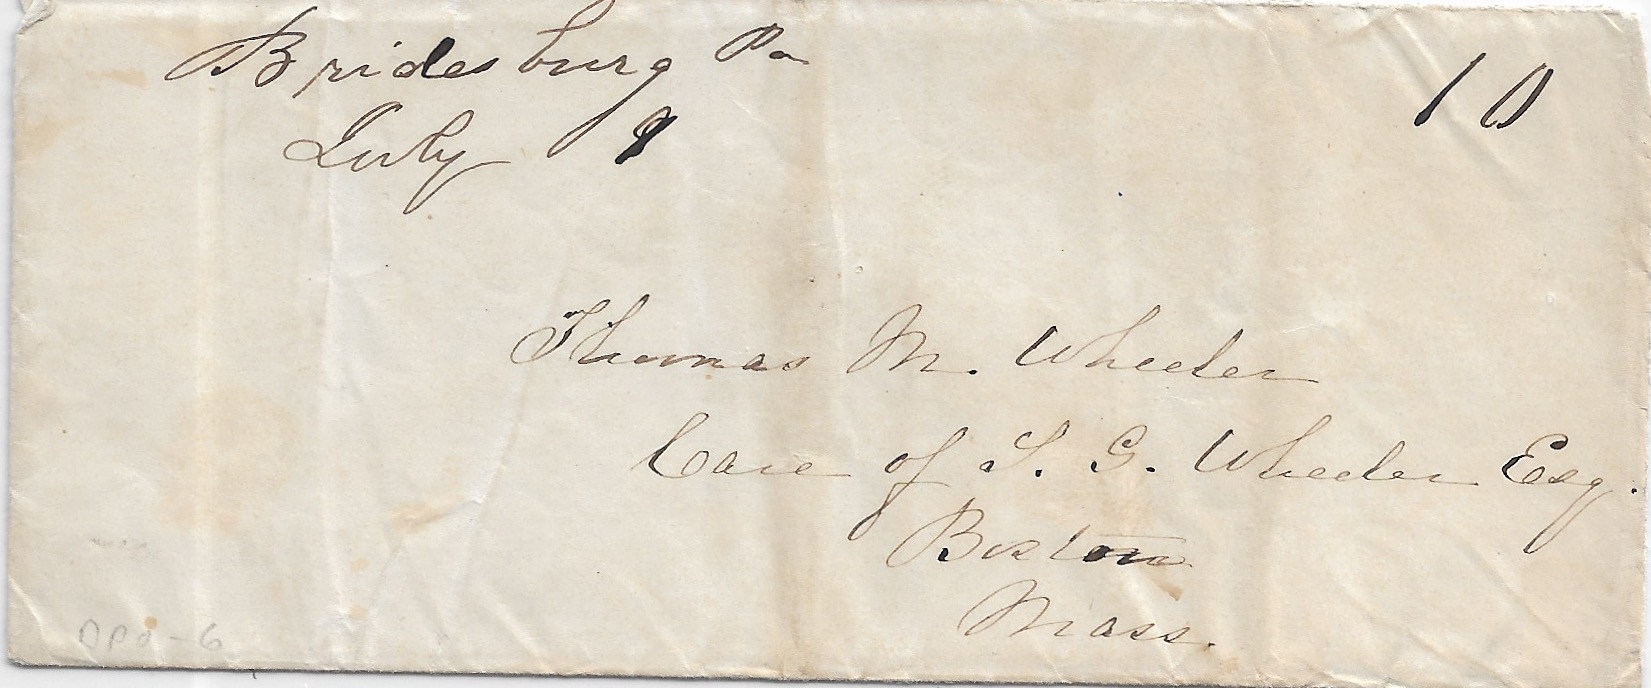 Bridesburg Pa
10
July 9
Thomas M. Wheeler
Care of S. G. Wheeler Esq.
Boston
Mass.
DPO-6